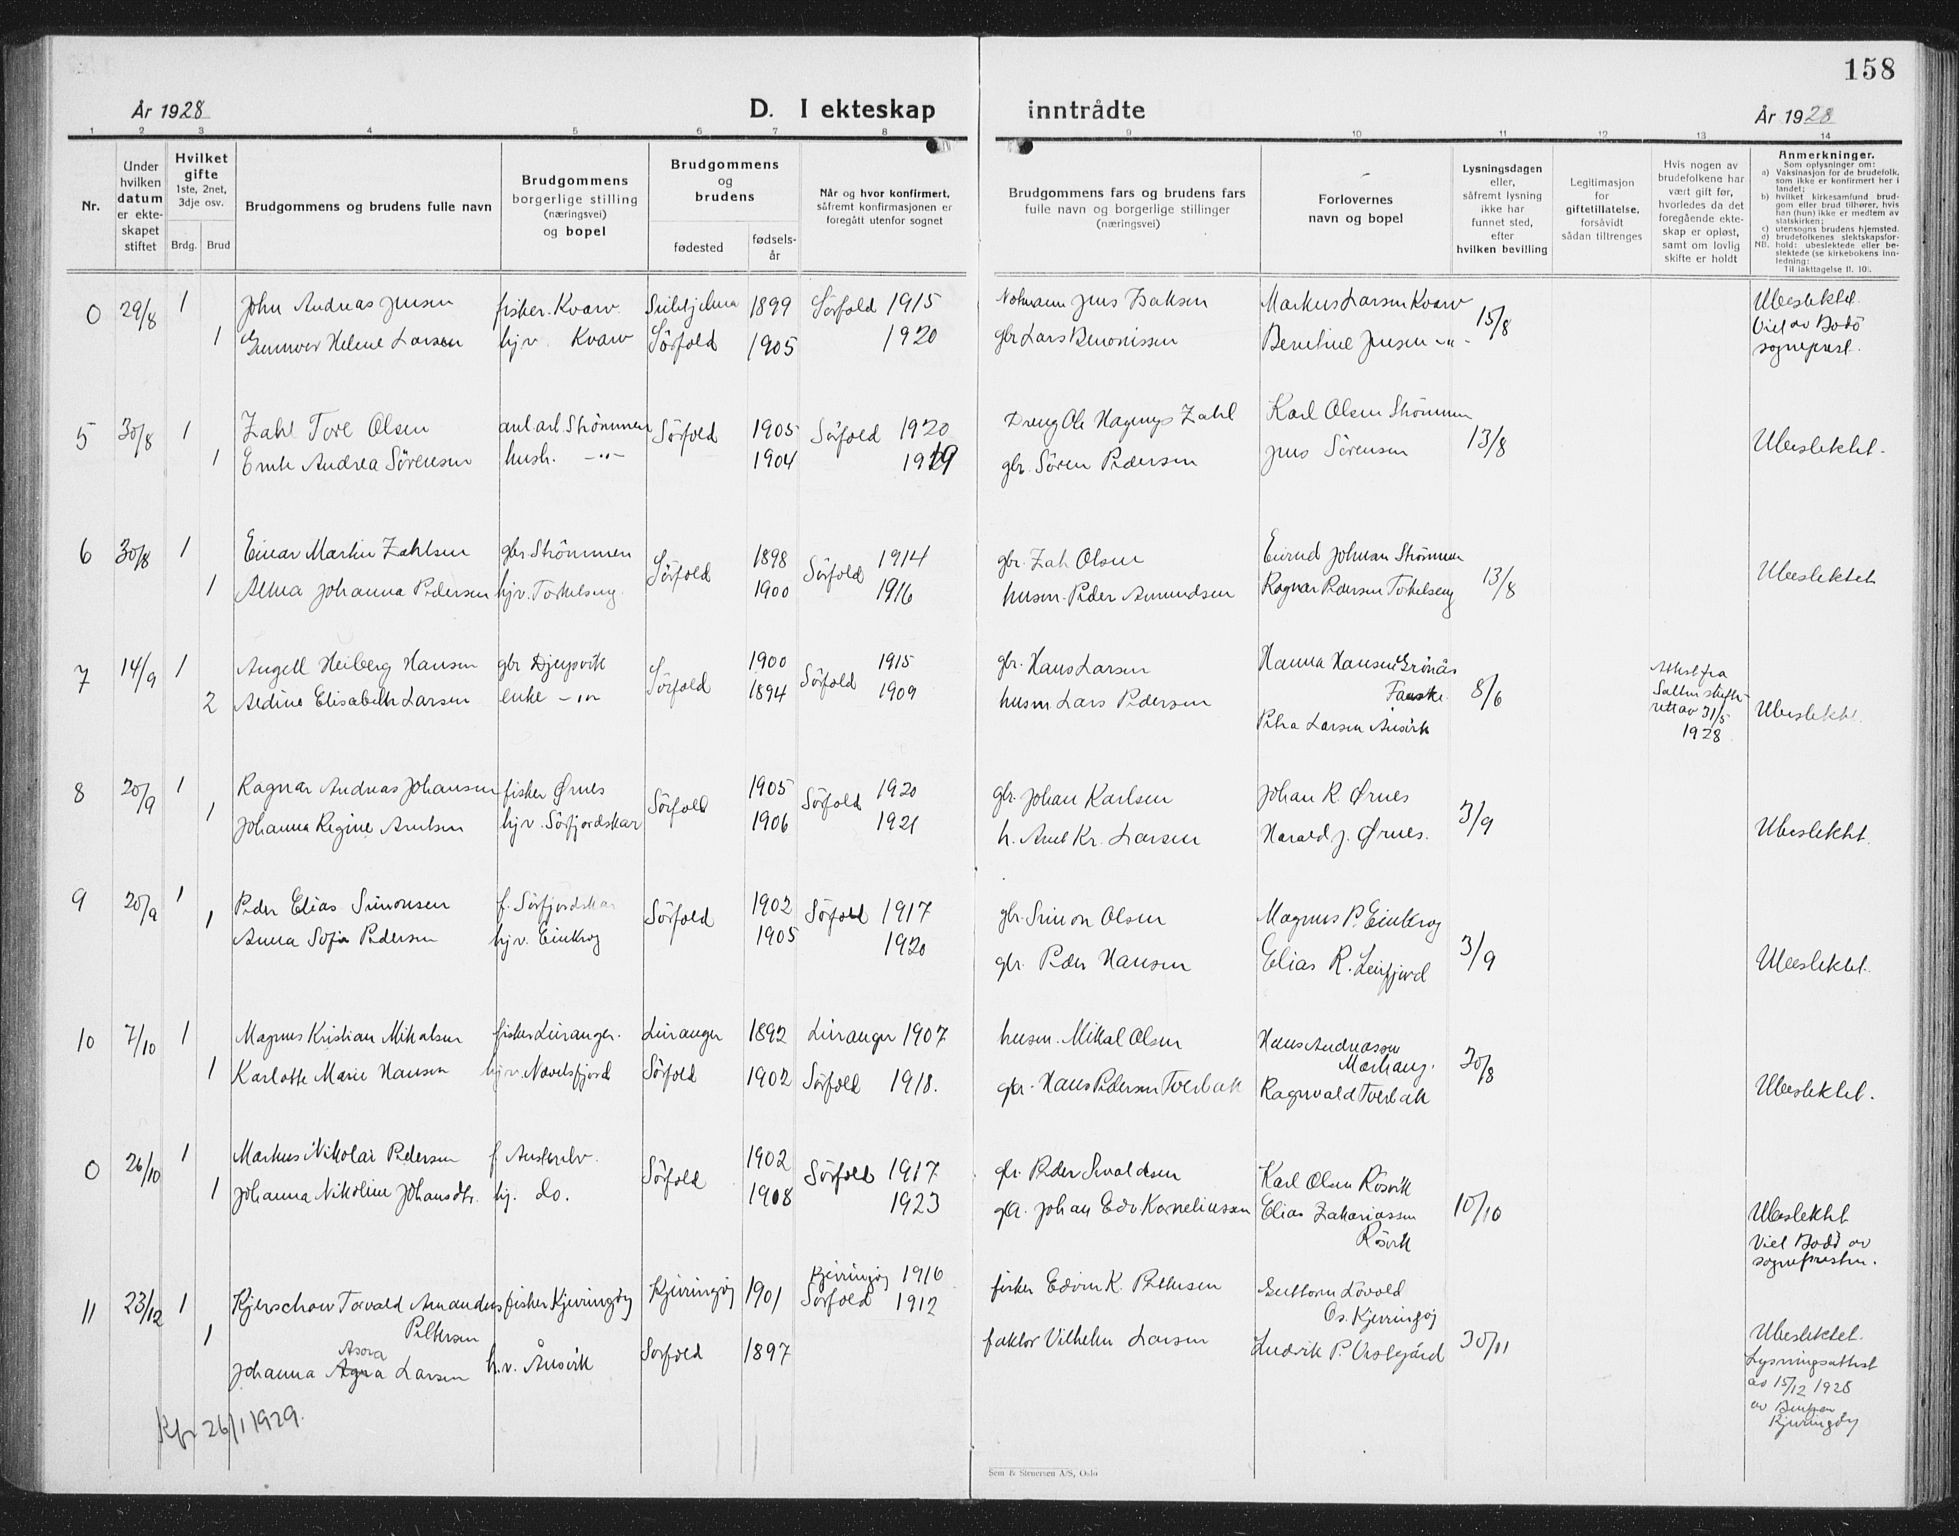 158
År 1928
D. I ekteskap inntrådte
År 1928
1 2 3 4 5 6 7 8 9 10 11 12 13 14
Nr.
Under hvilken datum er ekteskapet stiftet
Hvilket gifte 1ste, 2net, 3dje osv.
Brdg. Brud
Brudgommens og brudens fulle navn
Brudgommens borgerlige stilling (næringsvei) og bopel
Brudgommens og brudens
fødested
fødselsår
Når og hvor konfirmert, såfremt konfirmasjonen er foregått utenfor sognet
Brudgommens fars og brudens fars fulle navn og borgerlige stillinger (næringsvei)
Forlovernes navn og bopel
Lysningsdagen eller, såfremt lysning ikke har funnet sted, efter hvilken bevilling
Legitimasjon for giftetillatelse, forsåvidt sådan tiltrenges
Hvis nogen av brudefolkene har vært gift før, hvorledes da det foregående ekteskap er opløst, samt om lovlig skifte er holdt
Anmerkninger.
Som oplysninger om:
a) Vaksinasjon for de brudefolk, som ikke er konfirmert her i landet;
b) hvilket kirkesamfund brudgom eller brud tilhører, hvis han (hun) ikke er medlem av statskirken;
c) utensogns brudens hjemsted.
d) brudefolkenes slektskapsforhold: ubeslektede eller beslektede (se kirkebokens innledning:
NB.
Til iakttagelse II. 10).
0 29/8 1 John Andreas Jensen fisker. Kvarv. Sulitjelma 1899 Sørfold 1915 Jens Isaksen Markus Larsen Kvarv 15/8 Ubeslektet.
1 Gunnvor Helene Larsen hjv. Kvarv Sørfold 1905 1920 gbr Lars Benonissen Benetine Jensen -"- Viet av Bodö sogneprest.
5 30/8 1 Zahl Tore Olsen anl.arb. Strømmen Sørfold 1905 Sørfold 1920 Dreng Ole Hagenys Zahl Karl Olsen Strømmen 13/8 Ubeslektet.
1 Andrea Sørensen hush. -"- 1904 1919 gbr. Søren Pedersen Jens Sørensen
6 30/8 1 Einar Martin Zahlsen gbr Strømmen Sørfold 1898 Sørfold 1914 gbr. Zahl Olsen Johnsen Strømmen 13/8 Ubeslektet
1 Alma Johanna Pedersen hjv. Torkelseng. 1900 1916 husm. Peder Amundsen Ragnar Pedersen Torkelseng
7 14/9 1 Angell Heiberg Hansen gbr Djupvik Sørfold 1900 Sørfold 1915 gbr. Hans Larsen Hanna Hansen Grönås Fauske. 8/6 Attest fra Salten skifterett av 31/5 1928 Ubeslektet.
2 Aldine Elisabeth Larsen enke -"- 1894 1909 husm. Lars Pedersen Petra Larsen Ånsvik
8 20/9 1 Ragnar Andreas Johansen fisker Ørnes Sørfold 1905 Sørfold 1920 gbr. Johan Karlsen Johan K. Ørnes 3/9 Ubeslektet.
1 Johanna Regine Arntsen hjv. Sörfjordskar 1906 1921 h. Arnt Kr. Larsen Harald J. Ørnes.
9 20/9 1 Peder Elias Simonsen f. Sörfjordskar Sørfold 1902 Sørfold 1917 gbr. Simon Olsen Magnus P. Einkrog 3/9 Ubeslektet.
1 Anna Sofie Pedersen hjv. Einkrog 1905 1920 gbr. Peder Hansen Elias R. Leirfjord
10 7/10 1 Magnus Kristian Mikalsen fisker Leiranger. Leiranger 1892 Leiranger 1907 husm. Mikal Olsen Hans Andreassen 30/8
1 Karlotte Marie Hansen hjv. Nævelsfjord Sørfold 1902 Sørfold 1918. gbr. Hans Pedersen Tverbak Ragnvald Tverbak Ubeslektet.
0 26/10 1 Markus Nikolai Pedersen f Sørfold 1902 Sørfold 1917 gbr. Peder Sivaldsen Karl Olsen Rösvik 10/10
1 Johanna Nikoline Johansdtr. hj. do. 1908 1923 Johan Edv Korneliussen Elias Zakariassen Rösvik Ubeslektet
Viet Bodö av sognepresten.
11 23/12 1 Kjerschow Torvald Amandus Pettersen fisker Kjerringøy Kjerringøj 1901 Kjerringøj 1916 fisker Edvin K. Pettersen Guttorm Lövold Os. Kjerringøj 30/11 Ubeslektet.
1 Johanna Asora Agna Larsen h.v. Ånsvik Sørfold 1897 Sørfold 1912 faktor Vilhelm Larsen Ludvik P. Vistegård Lysningsattest av 15/12 1928 av Kjerringöy
Kfr 26/1 1929.
Sem & Stenersen A/S, Oslo